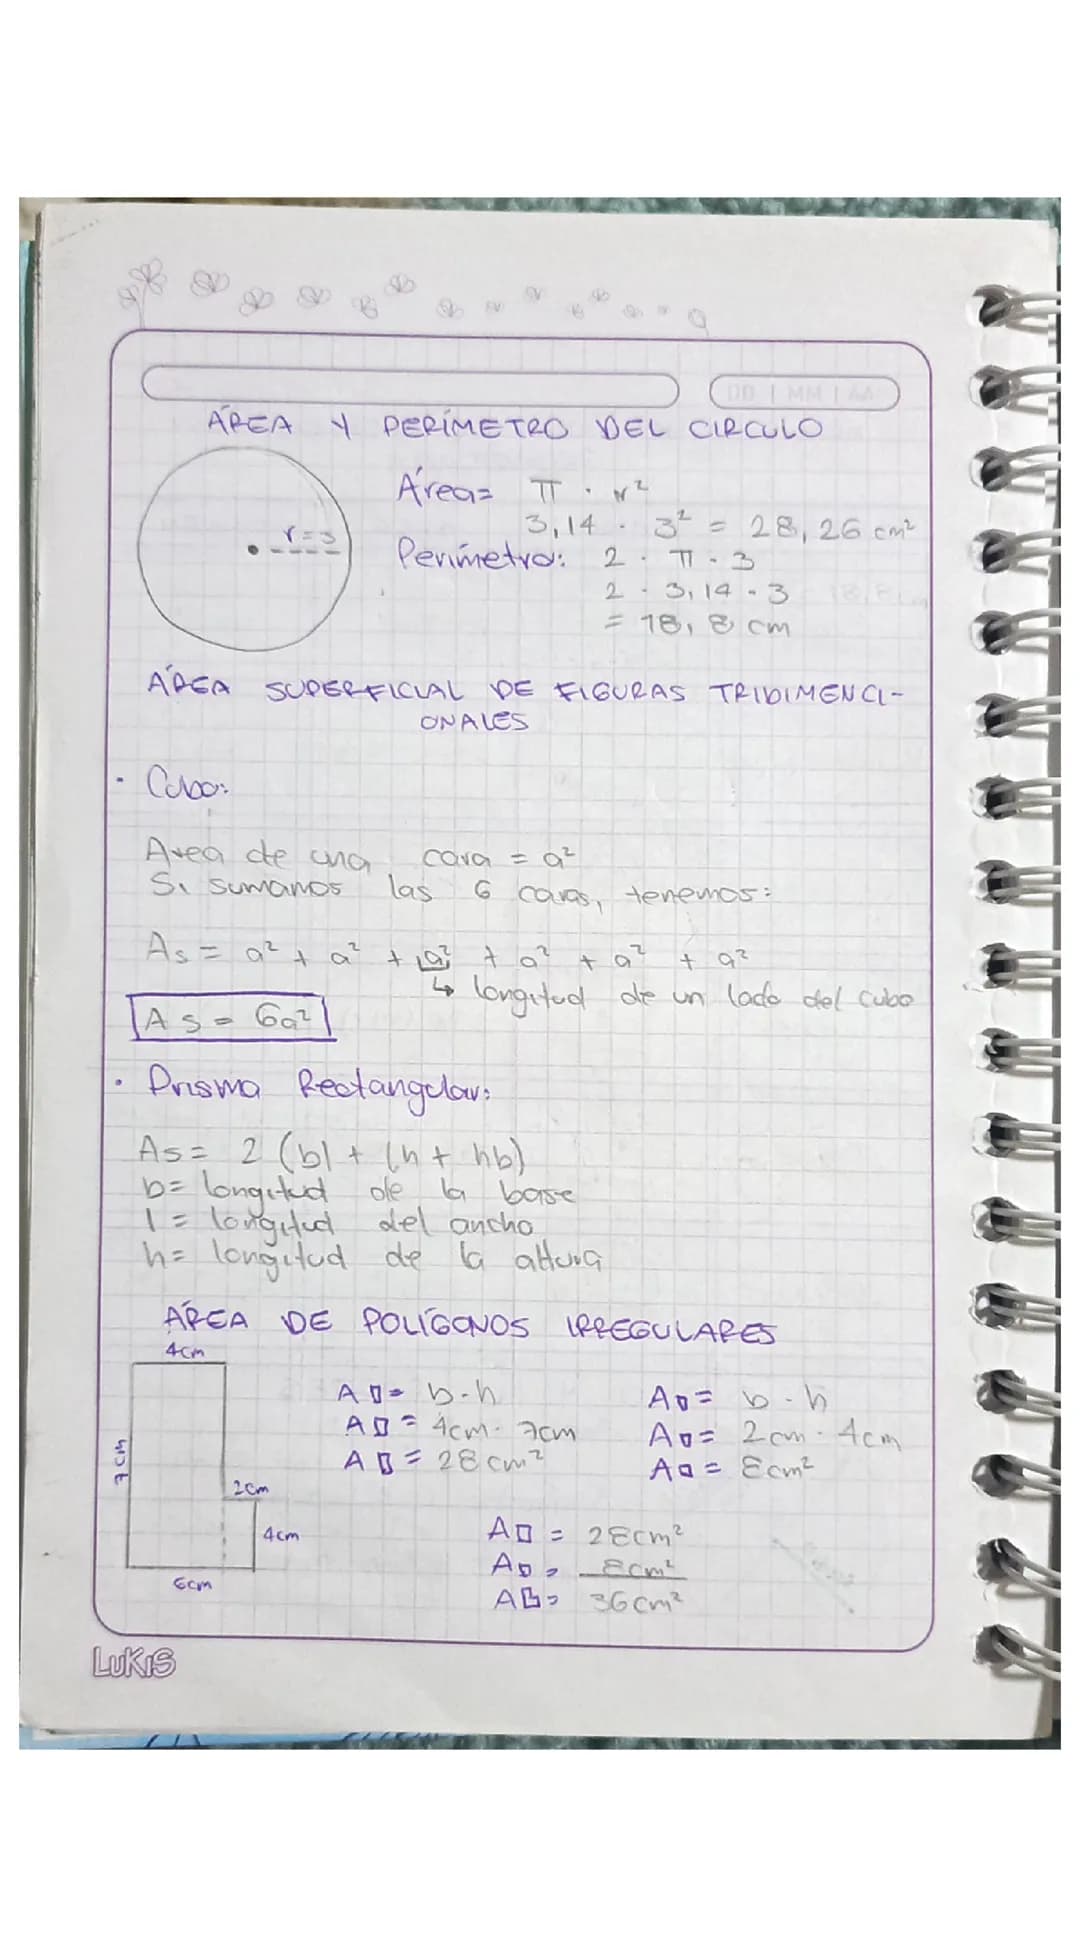 DD | MM | AA
ÁREA Y PERÍMETRO DEL CIRCULO
r=3
Área= π · r²
3,14 · 3² = 28,26 cm²
Perímetro: 2 · π · 3
2 · 3,14 · 3
= 18,8 cm
ÁREA SUPERFICIAL DE FIGURAS TRIDIMENCI-
ONALES
· Cubo:
Area de una cara = a²
Si sumamos las 6 caras, tenemos:
As = a² + a² + a² + a² + a² + a²
↳ longitud de un lado del cubo
As = 6a²
· Prisma Rectangular:
As= 2 (bl + lh + hb)
b= longitud de la base
l = longitud del ancho
h= longitud de la altura
ÁREA DE POLÍGONOS IRREGULARES
4cm
7cm
2cm
4cm
6cm
A▯= b·h
A▯= 4cm· 7cm
A▯= 28cm²
A▫= b·h
A▫= 2cm · 4cm
A▫= 8cm²
A▯ = 28cm²
A▫ = 8cm²
A = 36cm²
LUKIS